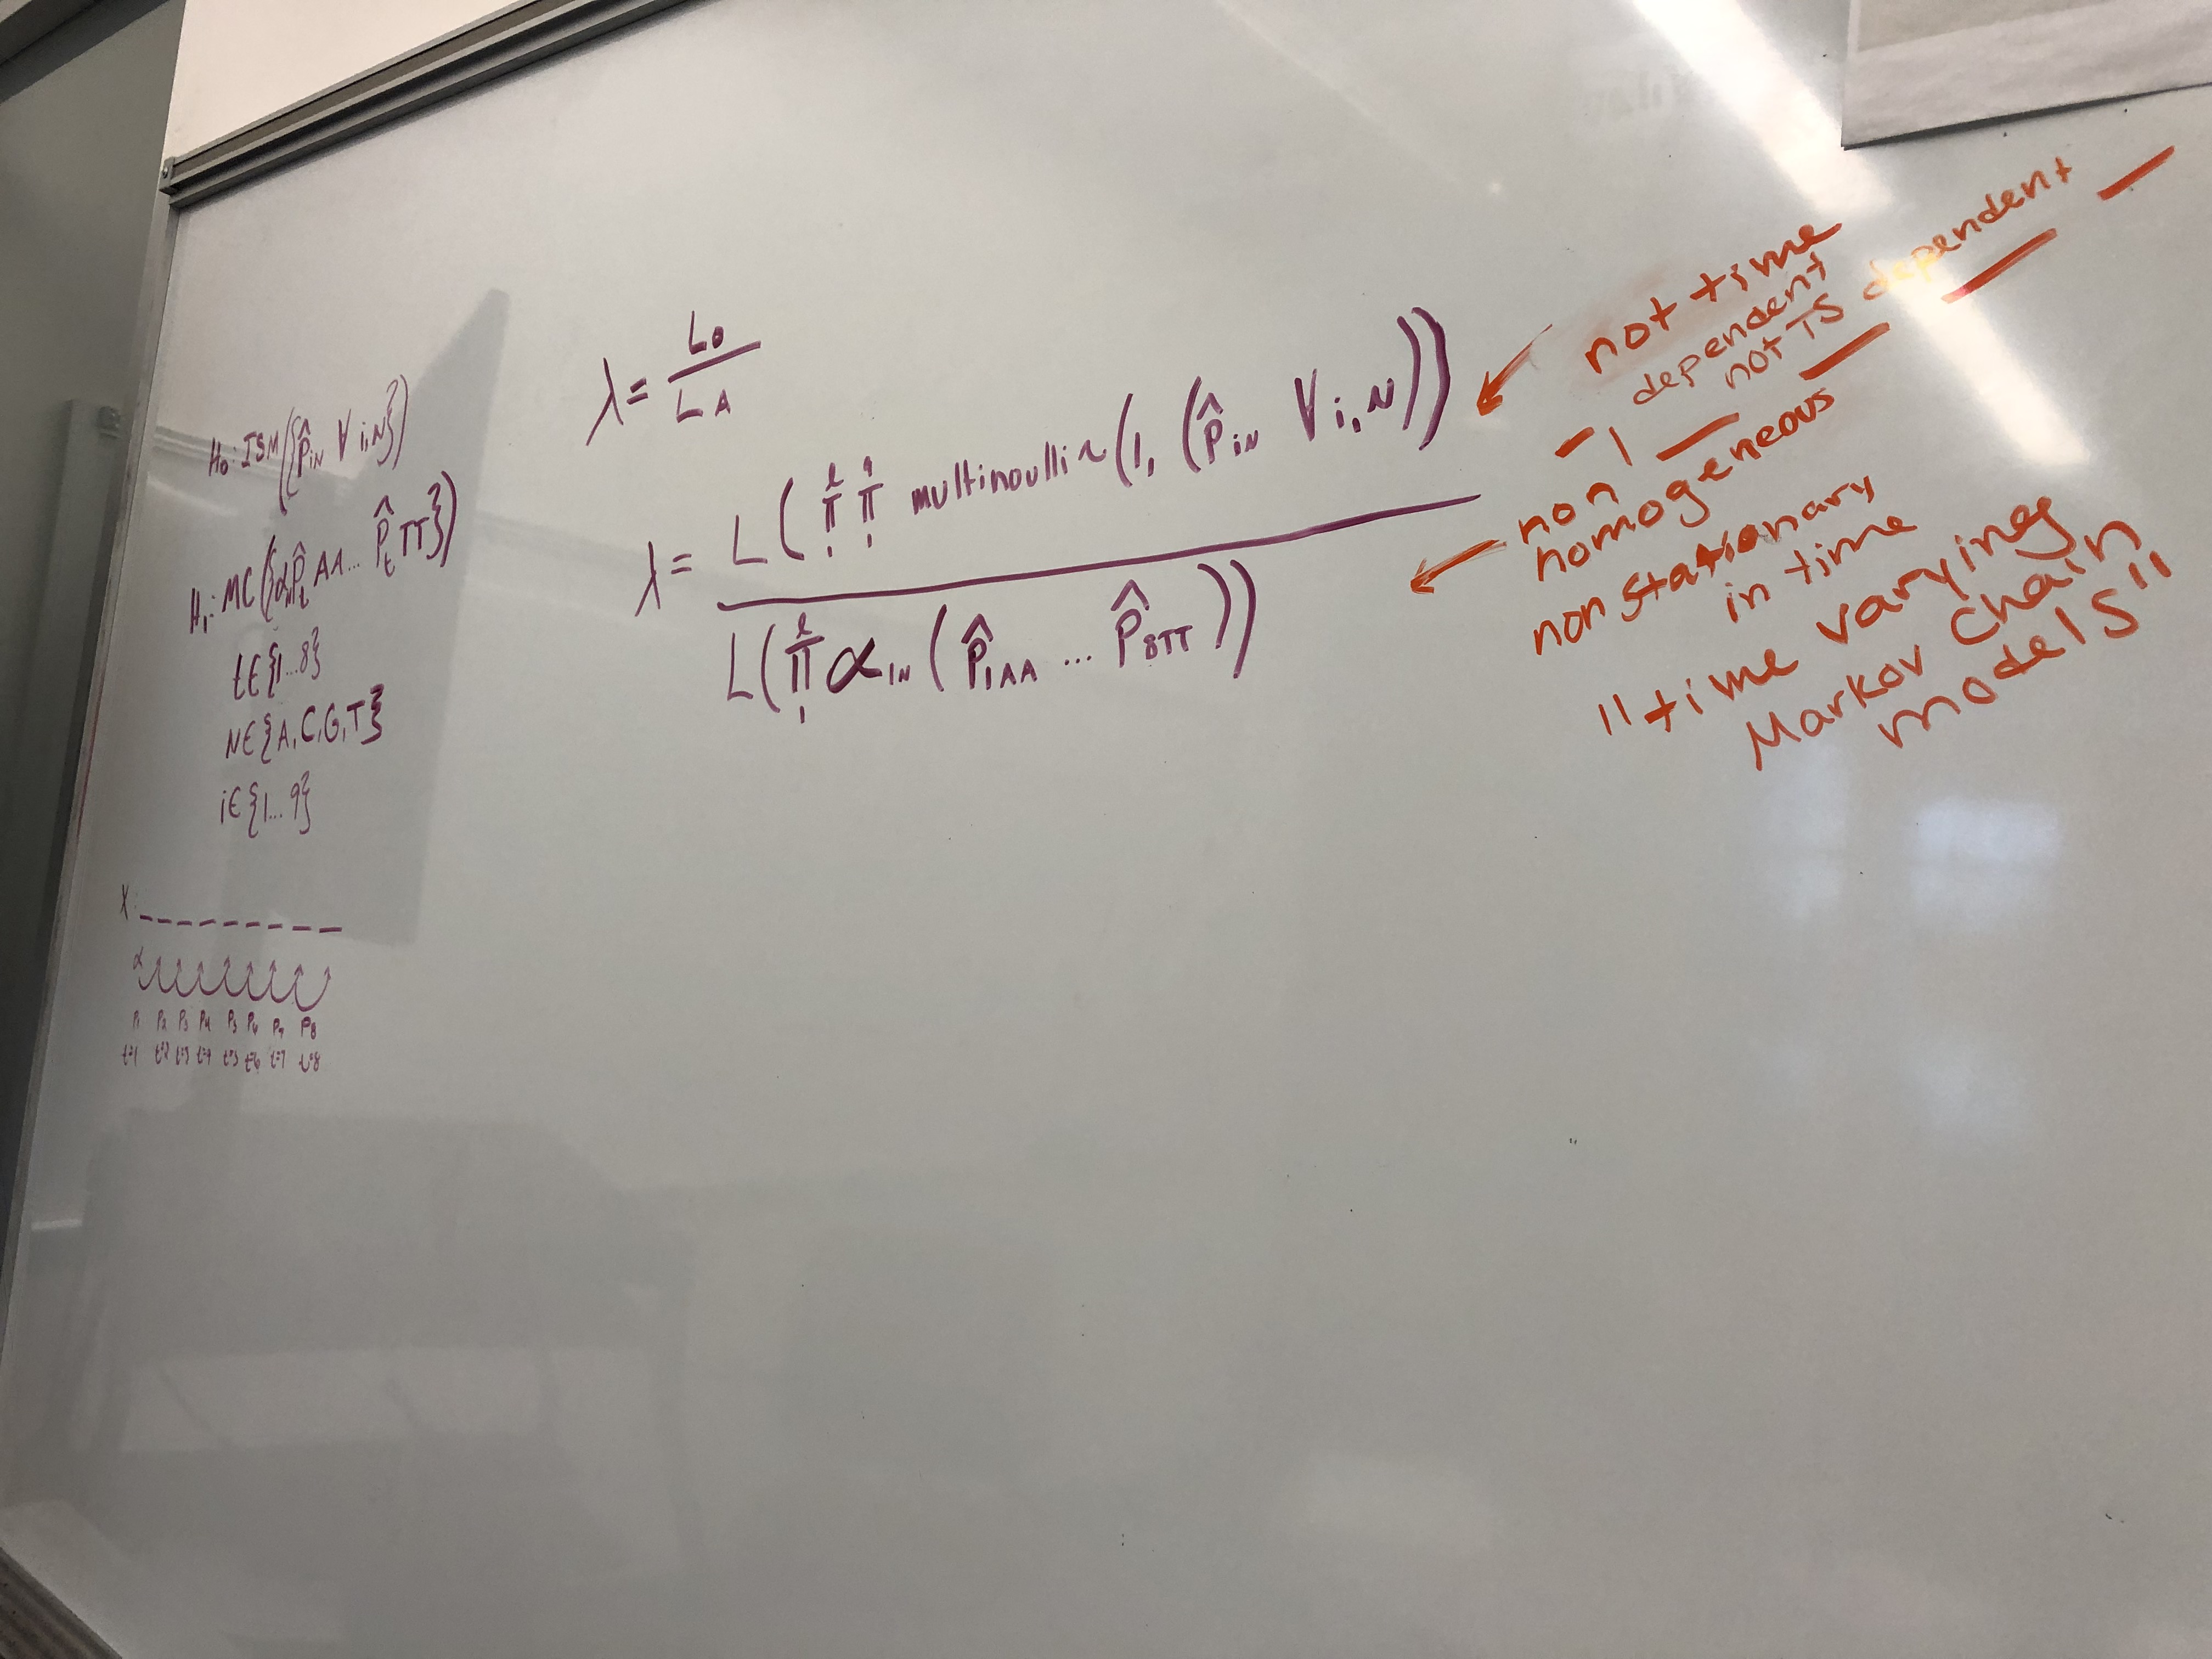 H₀: ISM({p̂ᵢₙ ∀ i,N})
H₁: MC({αₙ p̂ₜAA... p̂ₜTT})
t∈{1...8}
N∈{A,C,G,T}
i∈{1...9}
X: _ _ _ _ _ _ _ _ _
α
P₁ P₂ P₃ P₄ P₅ P₆ P₇ P₈
t=1 t=2 t=3 t=4 t=5 t=6 t=7 t=8
λ = L₀ / L A
λ = L(
l
π
1
9
π
1
multinoulli ~ (1, (p̂ᵢN ∀ i,N)))
L(
l
π
1
α₁N (p̂₁AA ... p̂₈TT))
not time
dependent
not TS dependent
non
homogeneous
nonstationary
in time
"time varying
Markov Chain
models"